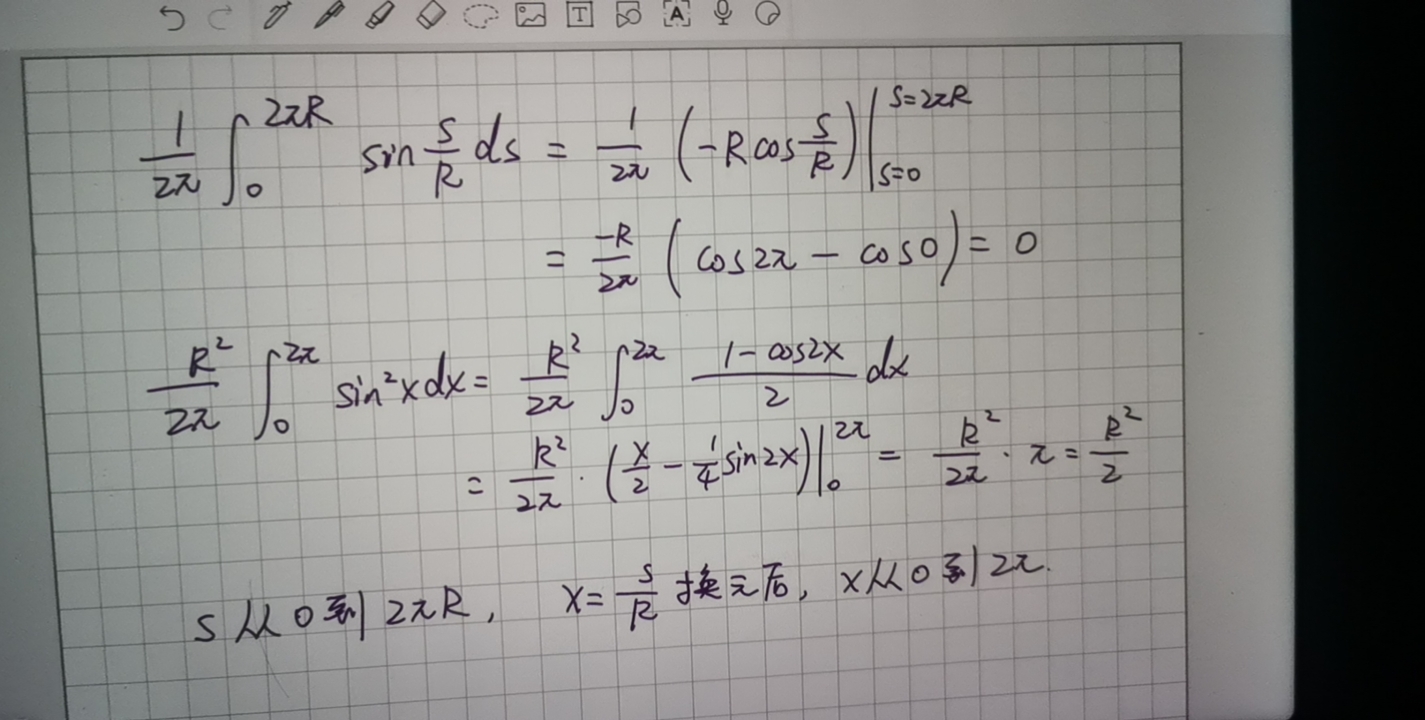 1/2π ∫₀^{2πR} sin s/R ds = 1/2π (-R cos s/R) |_{s=0}^{s=2πR}
= -R/2π (cos2π - cos0) = 0
R²/2π ∫₀^{2π} sin²x dx = R²/2π ∫₀^{2π} (1-cos2x)/2 dx
= R²/2π · (x/2 - 1/4 sin2x) |₀^{2π} = R²/2π · π = R²/2
s从0到2πR, x=s/R换元后, x从0到2π.